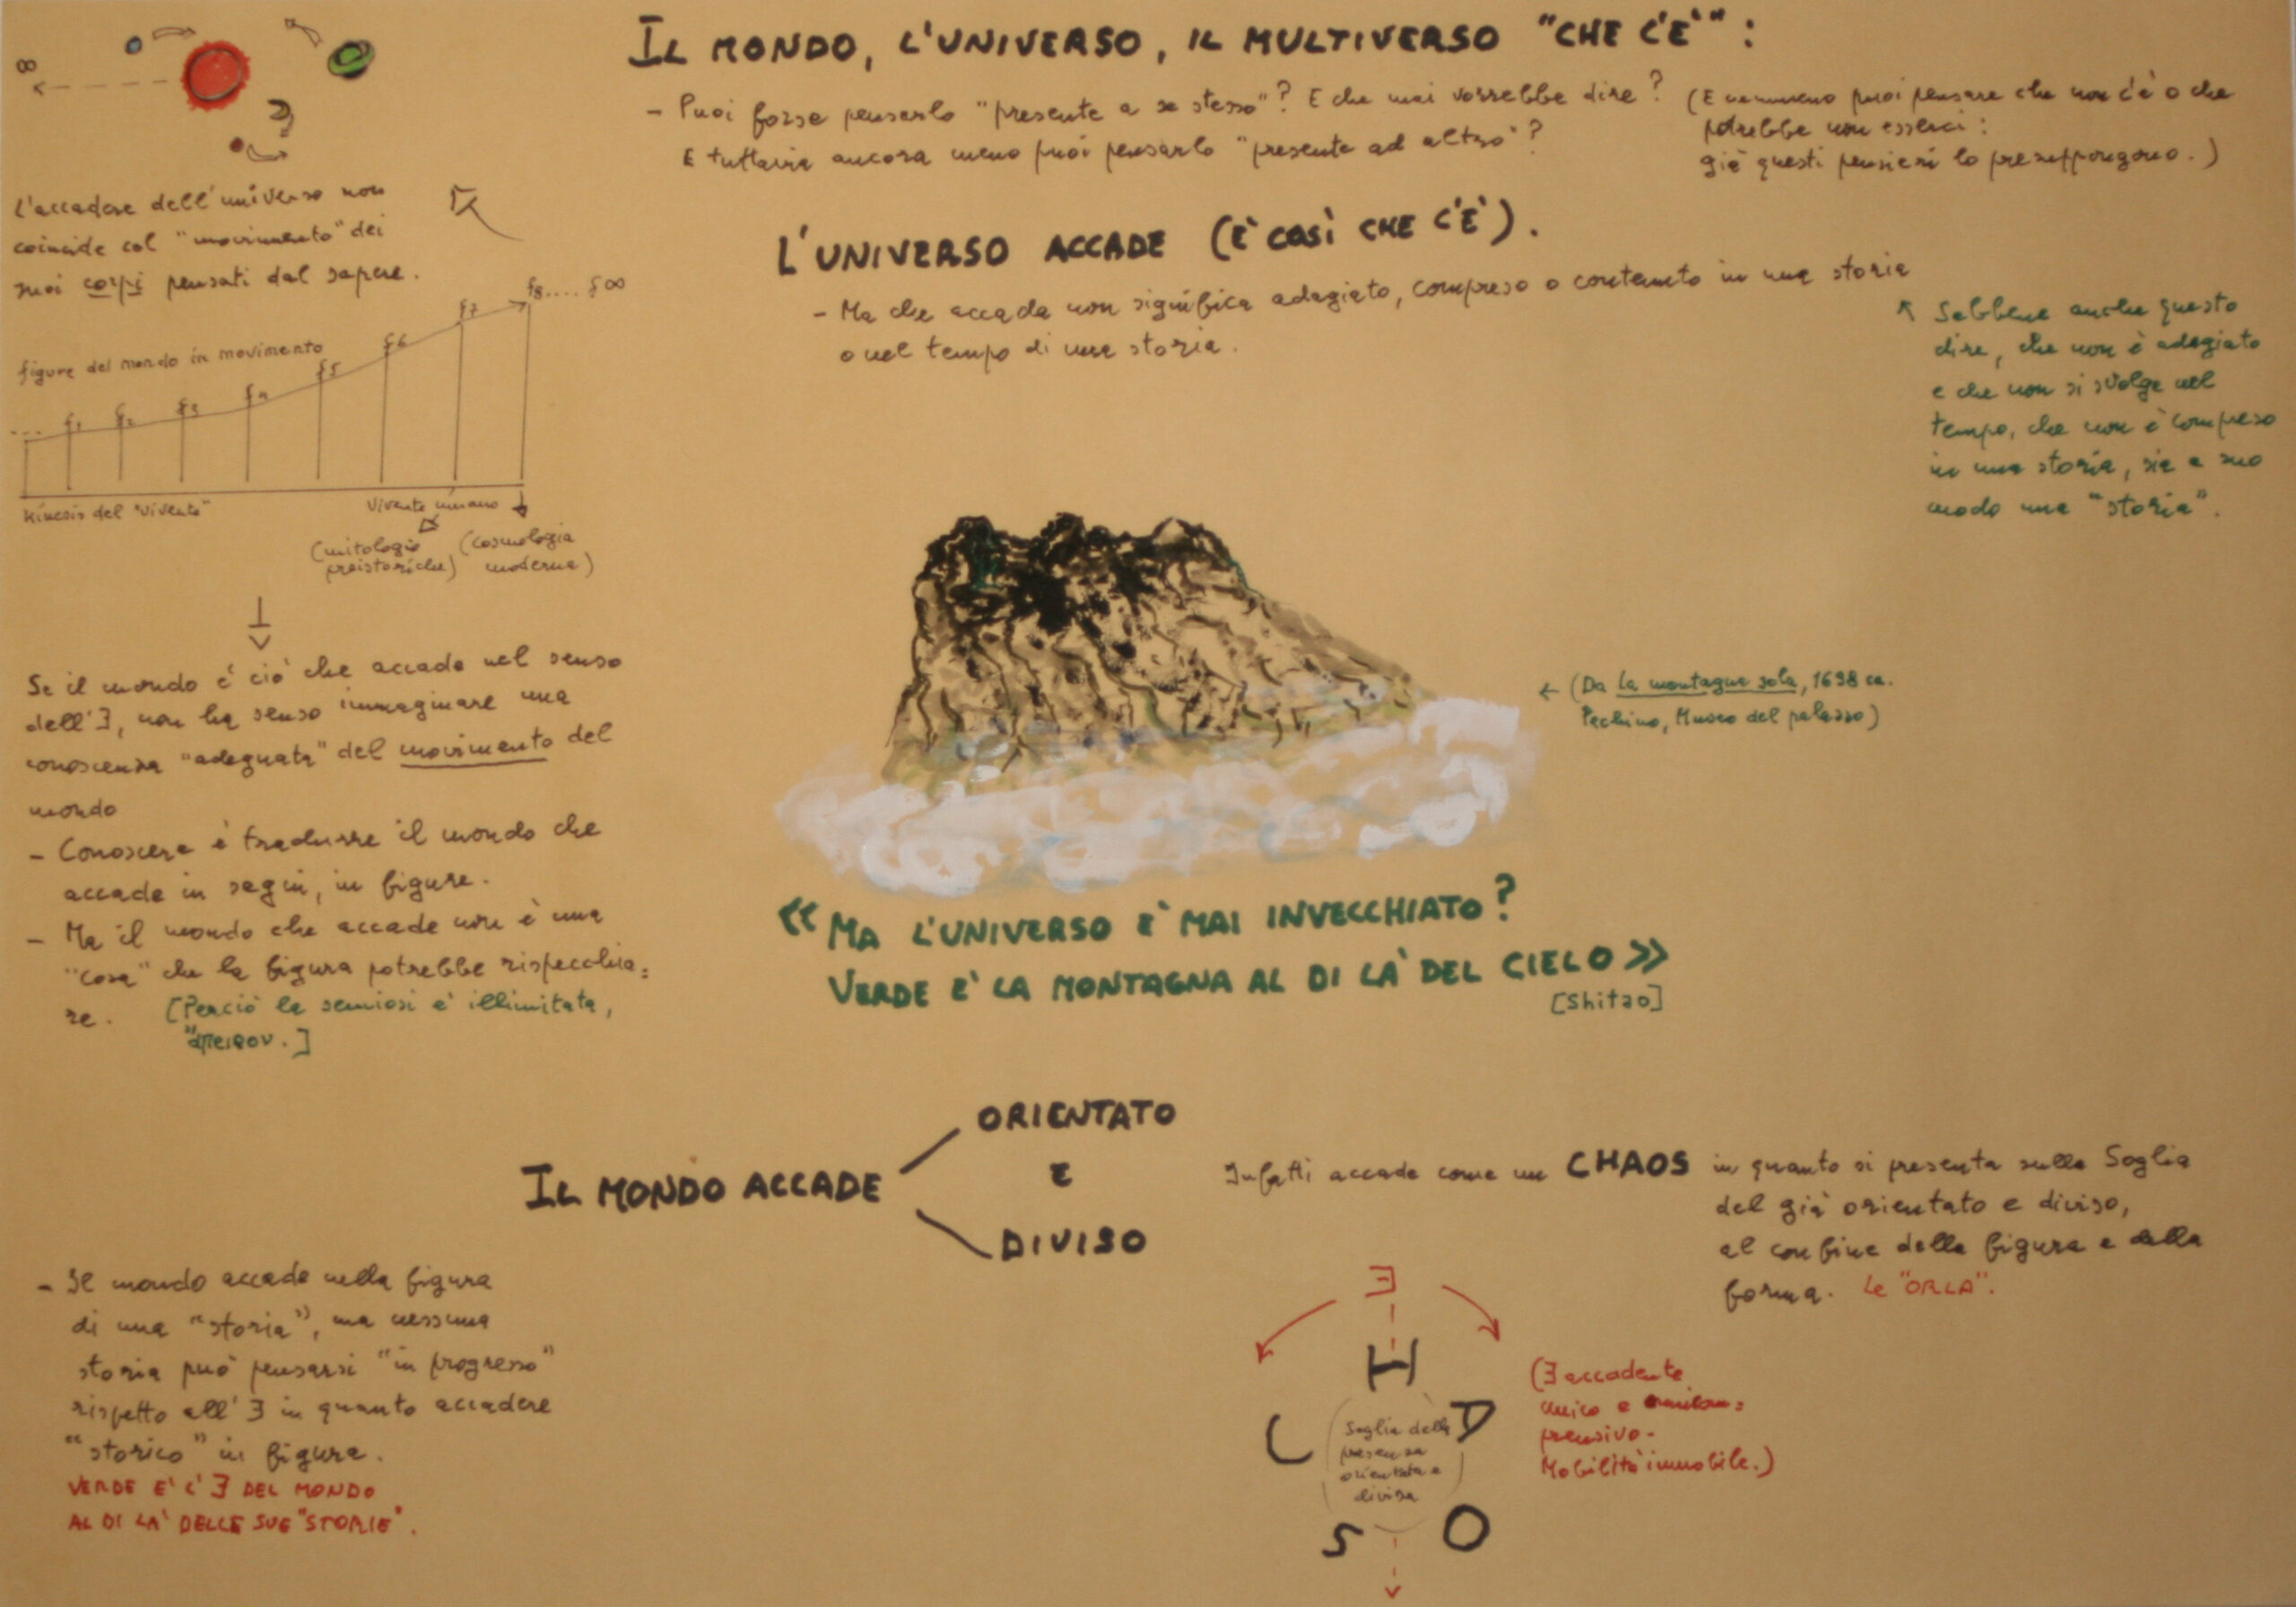 IL MONDO, L'UNIVERSO, IL MULTIVERSO "CHE C'È":
- Puoi forse pensarlo "presente a se stesso"? E che mai vorrebbe dire?
E tuttavia ancora meno puoi pensarlo "presente ad altro"?
(E nemmeno puoi pensare che non c'è o che
potrebbe non esserci:
già questi pensieri lo presuppongono.)
∞
L'accadere dell'universo non
coincide col "movimento" dei
suoi corpi pensati dal sapere.
L'UNIVERSO ACCADE (È COSÌ CHE C'È).
- Ma che accada non significa adagiato, compreso o contenuto in una storia
o nel tempo di una storia.
Sebbene anche questo
dire, che non è adagiato
e che non si svolge nel
tempo, che non è compreso
in una storia, sia a suo
modo una "storia".
figure del mondo in movimento
... f1 f2 f3 f4 f5 f6 f7 f8.... f∞
Kinesis del "vivente"
Vivente umano
(mitologie
preistoriche)
(cosmologia
moderna)
Se il mondo è ciò che accade nel senso
dell'∃, non ha senso immaginare una
conoscenza "adeguata" del movimento del
mondo
- Conoscere è tradurre il mondo che
accade in segni, in figure.
- Ma il mondo che accade non è una
"cosa" che la figura potrebbe rispecchia=
re. [Perciò la semiosi è illimitata,
ἄπειρον.]
← (Da La montagne sola, 1698 ca.
Pechino, Museo del palazzo)
«MA L'UNIVERSO È MAI INVECCHIATO?
VERDE È LA MONTAGNA AL DI LÀ DEL CIELO»
[Shitao]
IL MONDO ACCADE
ORIENTATO
E
DIVISO
Infatti accade come un CHAOS in quanto si presenta sulla Soglia
del già orientato e diviso,
al confine della figura e della
forma. Le "ORLA".
- Il mondo accade nella figura
di una "storia", ma nessuna
storia può pensarsi "in progresso"
rispetto all'∃ in quanto accadere
"storico" in figura.
VERDE È L'∃ DEL MONDO
AL DI LÀ DELLE SUE "STORIE".
∃
H
C
Soglia della
presenza
orientata e
divisa
S
O
(∃ accadente
unico e onnicom=
prensivo-
Mobilità immobile.)